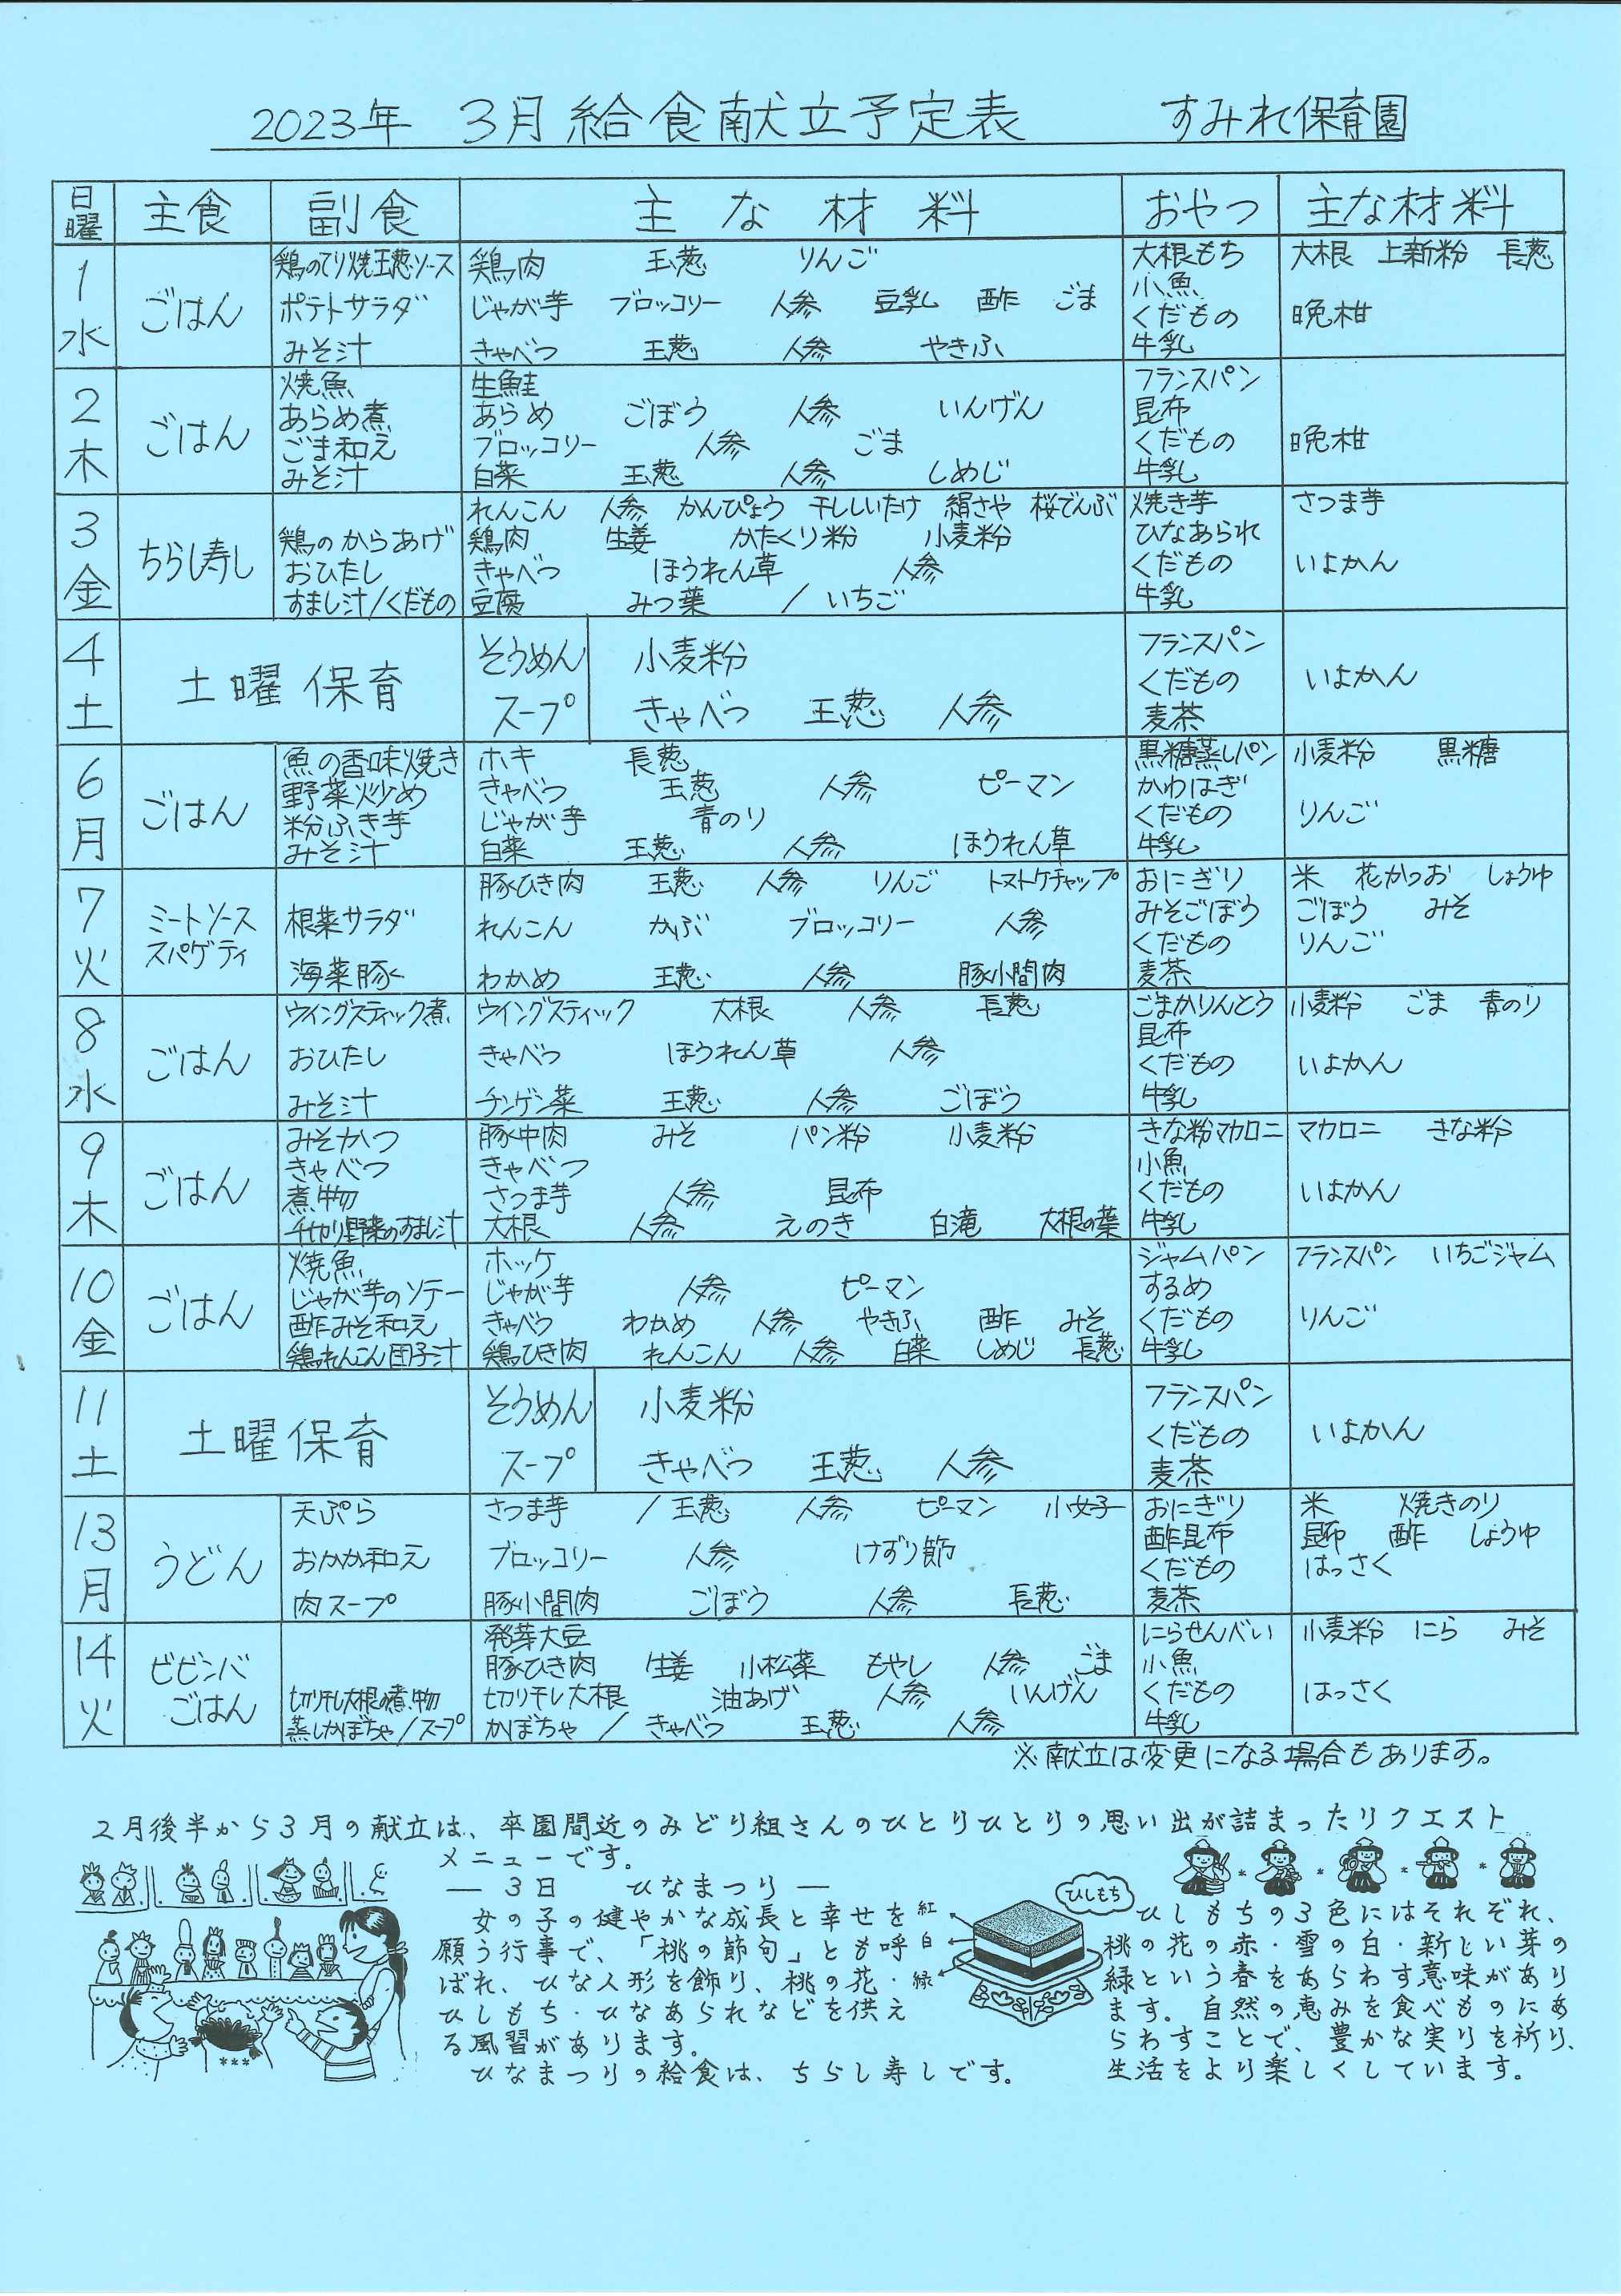 2023年 3月給食献立予定表 すみれ保育園
日曜 主食 副食 主な材料 おやつ 主な材料
1 水 ごはん
鶏のてり焼玉葱ソース 鶏肉 玉葱 りんご
ポテトサラダ じゃが芋 ブロッコリー 人参 豆乳 酢 ごま
みそ汁 きゃべつ 玉葱 人参 やきふ
大根もち 大根 上新粉 長葱
小魚
くだもの 晩柑
牛乳
2 木 ごはん
焼魚 生鮭
あらめ煮 あらめ ごぼう 人参 いんげん
ごま和え ブロッコリー 人参 ごま
みそ汁 白菜 玉葱 人参 しめじ
フランスパン
昆布
くだもの 晩柑
牛乳
3 金 ちらし寿し
れんこん 人参 かんぴょう 干ししいたけ 絹さや 桜でんぶ
鶏のからあげ 鶏肉 生姜 かたくり粉 小麦粉
おひたし きゃべつ ほうれん草 人参
すまし汁/くだもの 豆腐 みつ葉 / いちご
焼き芋 さつま芋
ひなあられ
くだもの いよかん
牛乳
4 土 土曜保育
そうめん 小麦粉
スープ きゃべつ 玉葱 人参
フランスパン
くだもの いよかん
麦茶
6 月 ごはん
魚の香味焼き ホキ 長葱
野菜炒め きゃべつ 玉葱 人参 ピーマン
粉ふき芋 じゃが芋 青のり
みそ汁 白菜 玉葱 人参 ほうれん草
黒糖蒸しパン 小麦粉 黒糖
かわはぎ
くだもの りんご
牛乳
7 火 ミートソース
スパゲティ
豚ひき肉 玉葱 人参 りんご トマトケチャップ
根菜サラダ れんこん かぶ ブロッコリー 人参
海菜豚汁 わかめ 玉葱 人参 豚小間肉
おにぎり 米 花かつお しょうゆ
みそごぼう ごぼう みそ
くだもの りんご
麦茶
8 水 ごはん
ウイングスティック煮 ウイングスティック 大根 人参 長葱
おひたし きゃべつ ほうれん草 人参
みそ汁 チンゲン菜 玉葱 人参 ごぼう
ごまかりんとう 小麦粉 ごま 青のり
昆布
くだもの いよかん
牛乳
9 木 ごはん
みそかつ 豚中肉 みそ パン粉 小麦粉
きゃべつ きゃべつ
煮物 さつま芋 人参 昆布
千切り野菜のすまし汁 大根 人参 えのき 白滝 大根の葉
きな粉マカロニ マカロニ きな粉
小魚
くだもの いよかん
牛乳
10 金 ごはん
焼魚 ホッケ
じゃが芋のソテー じゃが芋 人参 ピーマン
酢みそ和え きゃべつ わかめ 人参 やきふ 酢 みそ
鶏れんこん団子汁 鶏ひき肉 れんこん 人参 白菜 しめじ 長葱
ジャムパン フランスパン いちごジャム
するめ
くだもの りんご
牛乳
11 土 土曜保育
そうめん 小麦粉
スープ きゃべつ 玉葱 人参
フランスパン
くだもの いよかん
麦茶
13 月 うどん
天ぷら さつま芋 / 玉葱 人参 ピーマン 小女子
おかか和え ブロッコリー 人参 けずり節
肉スープ 豚小間肉 ごぼう 人参 長葱
おにぎり 米 焼きのり
酢昆布 昆布 酢 しょうゆ
くだもの はっさく
麦茶
14 火 ビビンバ
ごはん
発芽大豆
豚ひき肉 生姜 小松菜 もやし 人参 ごま
切り干し大根の煮物 切り干し大根 油あげ 人参 いんげん
蒸しかぼちゃ/スープ かぼちゃ / きゃべつ 玉葱 人参
にらせんべい 小麦粉 にら みそ
小魚
くだもの はっさく
牛乳
※献立は変更になる場合もあります。
2月後半から3月の献立は、卒園間近のみどり組さんのひとりひとりの思い出が詰まったリクエスト
メニューです。
― 3日 ひなまつり ―
女の子の健やかな成長と幸せを
願う行事で、「桃の節句」とも呼
ばれ、ひな人形を飾り、桃の花・
ひしもち・ひなあられなどを供え
る風習があります。
ひなまつりの給食は、ちらし寿しです。
紅
白
緑
ひしもち
ひしもちの3色にはそれぞれ、
桃の花の赤・雪の白・新しい芽の
緑という春をあらわす意味があり
ます。自然の恵みを食べものにあ
らわすことで、豊かな実りを祈り、
生活をより楽しくしています。